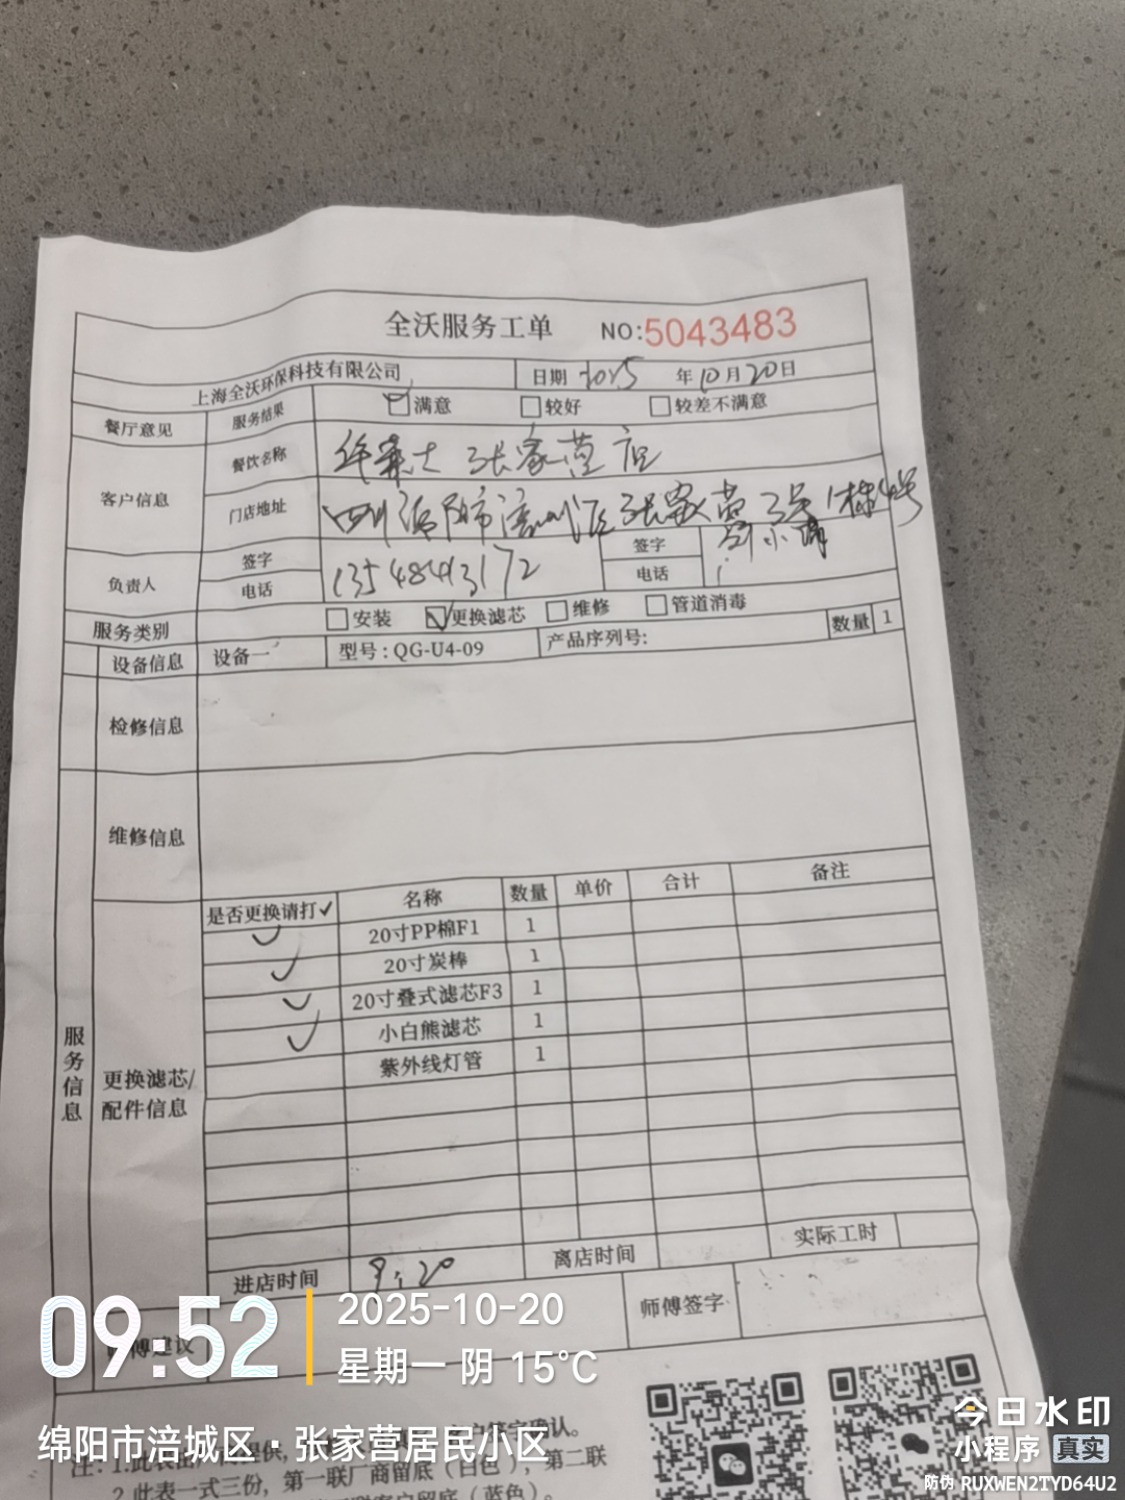 全沃服务工单 NO:5043483
上海全沃环保科技有限公司 日期 2025 年 10 月 20 日
餐厅意见 服务结果 满意 较好 较差不满意
客户信息 餐饮名称 华莱士 张家营店
门店地址 四川绵阳市涪城区张家营3号1栋4号
负责人 签字 签字
电话 13548413172 电话
服务类别 安装 更换滤芯 维修 管道消毒
设备信息 设备一 型号：QG-U4-09 产品序列号: 数量 1
检修信息
维修信息
服务信息
更换滤芯/
配件信息
是否更换请打✓ 名称 数量 单价 合计 备注
✓ 20寸PP棉F1 1
✓ 20寸炭棒 1
✓ 20寸叠式滤芯F3 1
✓ 小白熊滤芯 1
紫外线灯管 1
进店时间 9:20 离店时间 实际工时
建议 师傅签字
注：1.此表由 提供， 签字确认。
2.此表一式三份，第一联厂商留底（白色），第二联
客户留底（蓝色）。
09:52
2025-10-20
星期一 阴 15℃
绵阳市涪城区·张家营居民小区
今日水印
小程序 真实
防伪 RUXWEN2TYD64U2